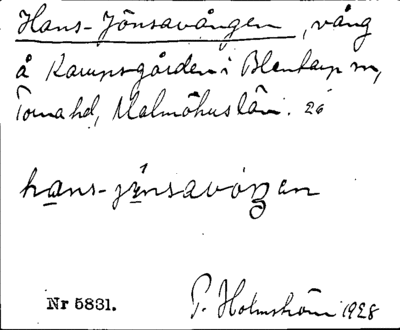 Hans-Jönsavången, vång
å Kampsgården i Blentarp sn,
Torna hd, Malmöhus län. 26
hans-jönsavóŋen
Nr 5831. P. Holmström 1928